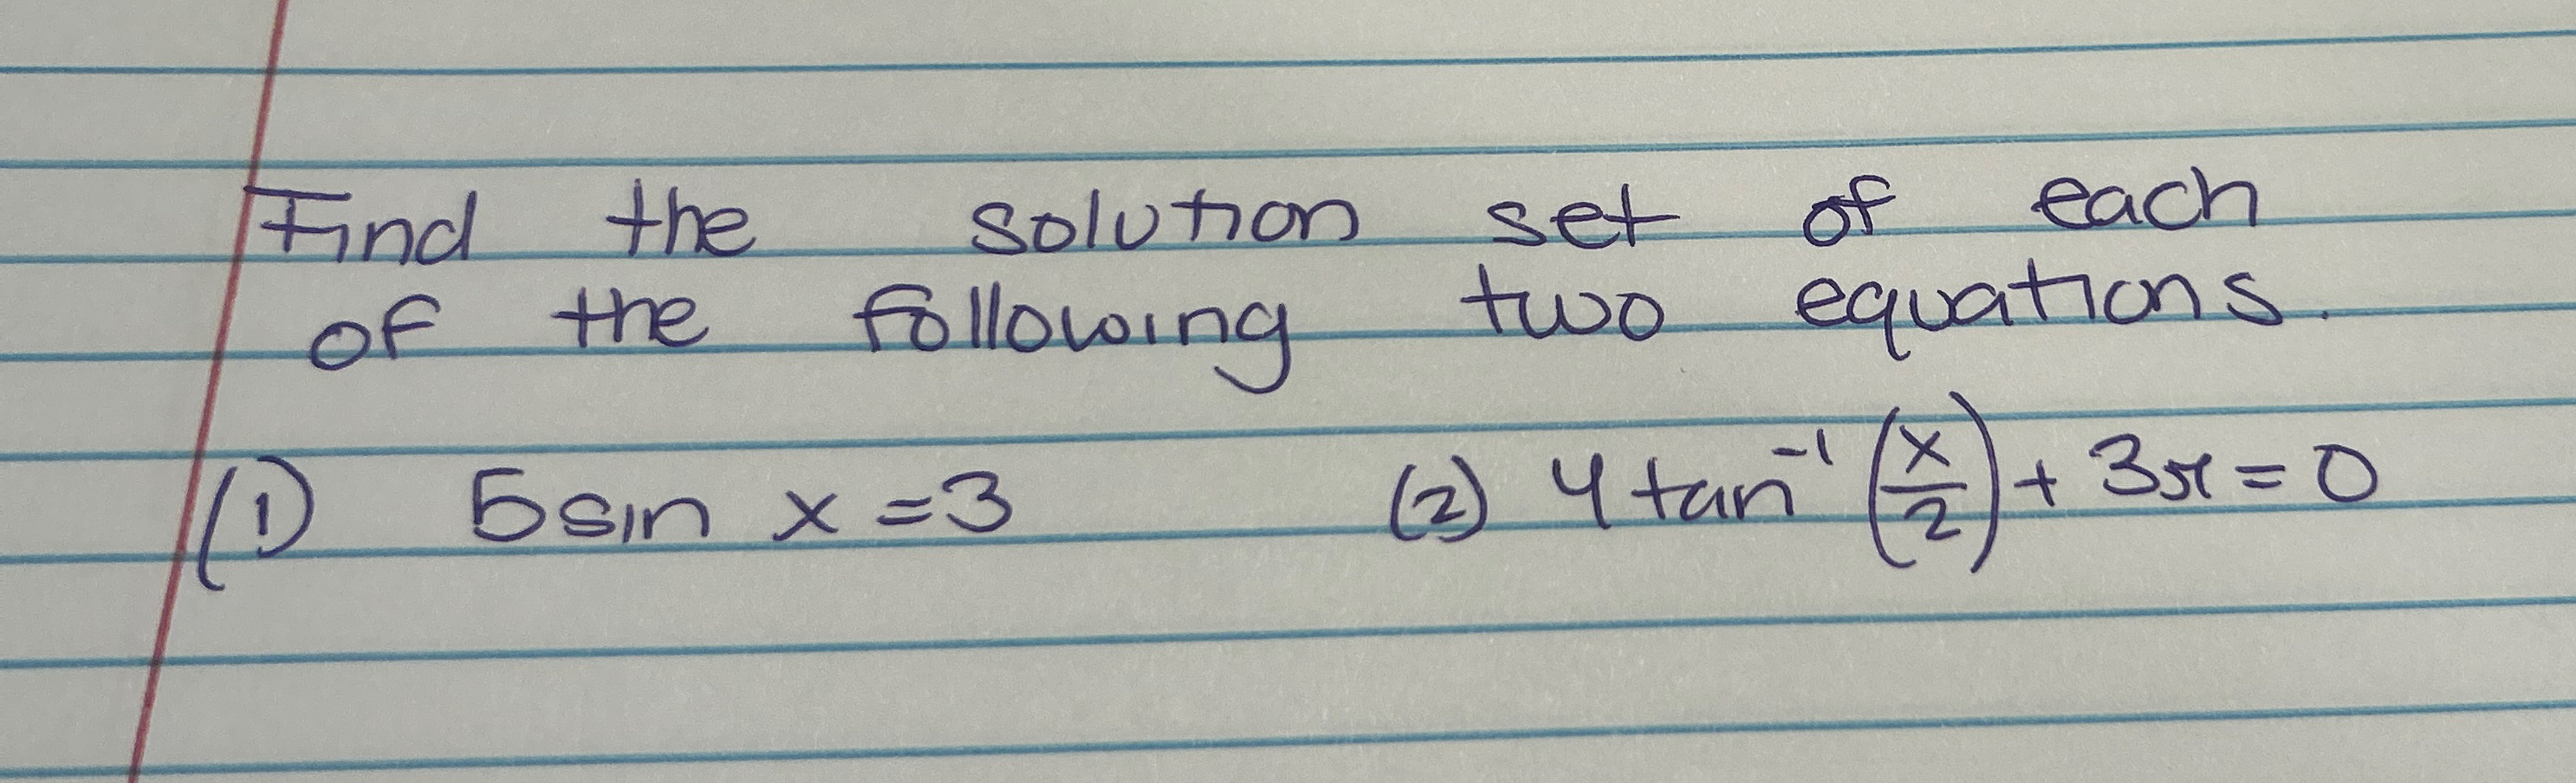 Find the solution set of each
of the following two equations.
(1) 5 sin x = 3 (2) 4 tan⁻¹ (x/2) + 3π = 0